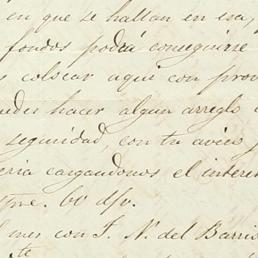 en que se hallan en esa,
fondos podrá conseguirse
colocar aqui con prov
hacer algun arreglo
seguridad, con tu aviso
cargandonos el interes
60 d/v.
mes con J. N. del Barri